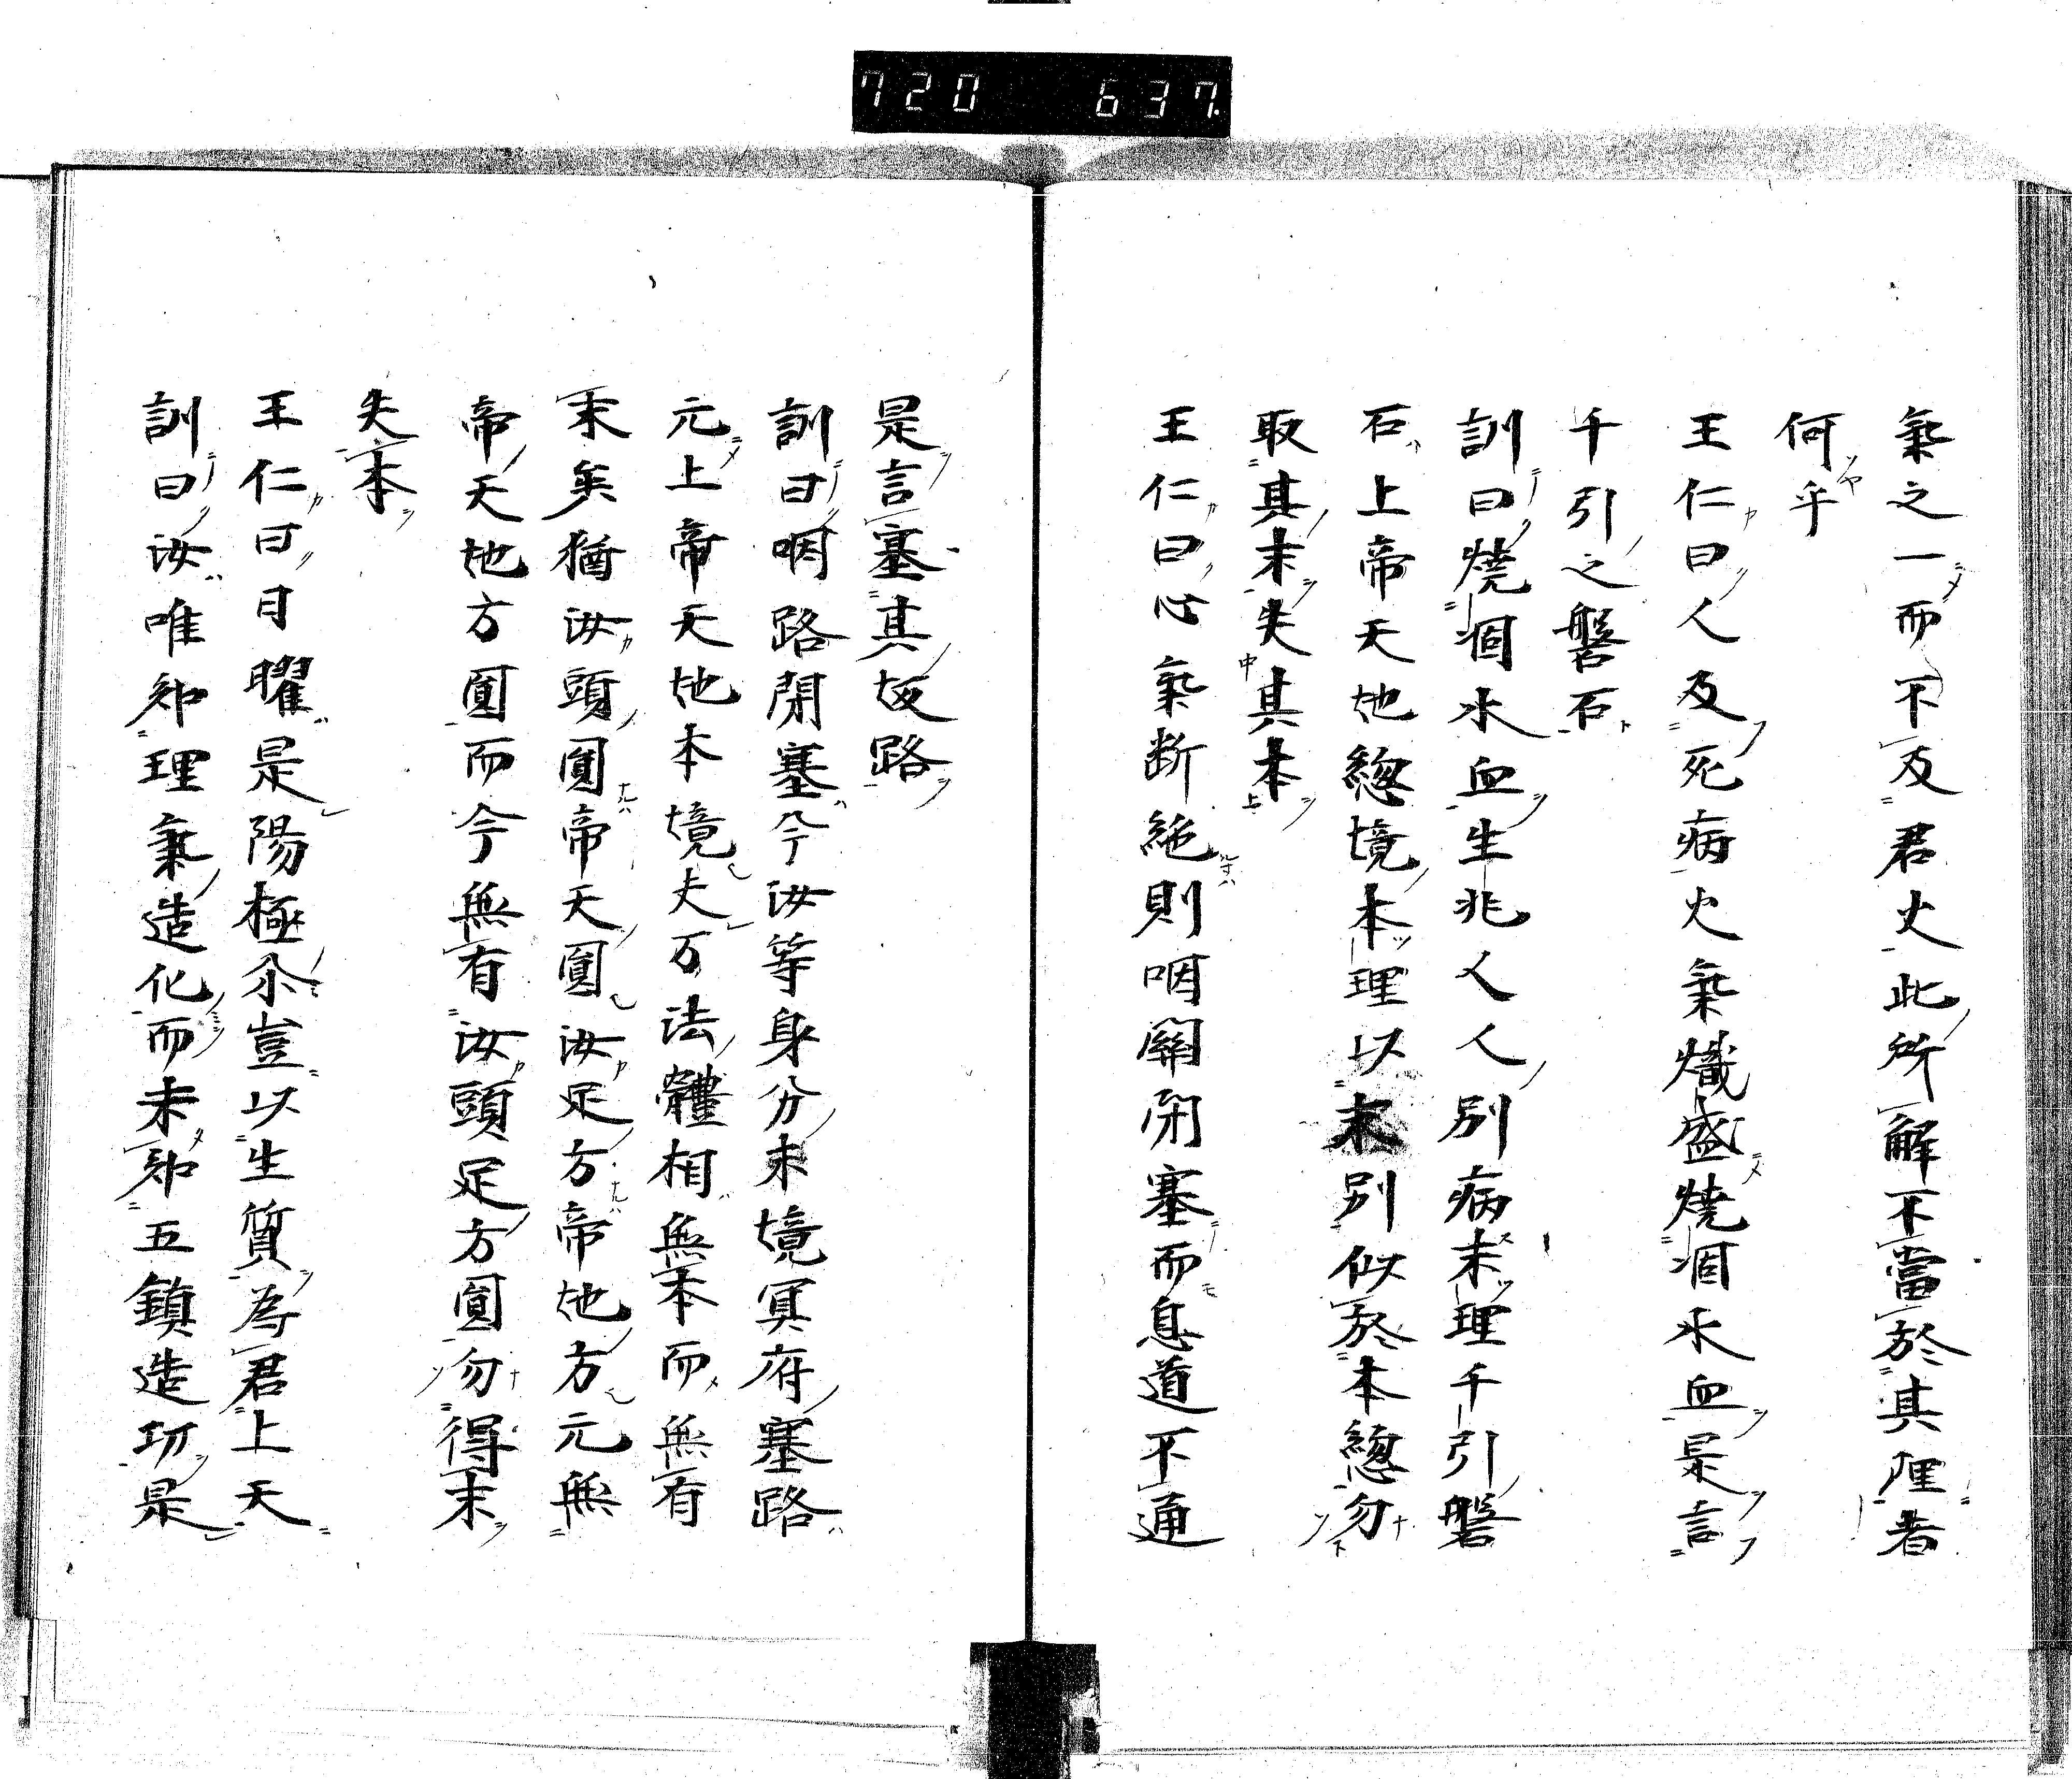 720 637.
氣之一而不及君火此所解不當於其理者
何乎
王仁曰人及死病火氣熾盛燒涸水血是言
千引之磐石
訓曰燒涸水血生兆人人別病末理千引磐
石上帝天地總境本理以末別似於本總勿
取其末失其本
王仁曰心氣断絶則咽關閉塞而息道不通
是言塞其坂路
訓曰咽路閉塞今汝等身分末境冥府塞路
元上帝天地本境夫万法軆相無本而無有
末矣猶汝頭圓帝天圓汝足方帝地方元無
帝天地方圓而今無有汝頭足方圓勿得末
失本
王仁曰日曜是陽極尒豈以生質為君上天
訓曰汝唯知理氣造化而未知五鎮造功是